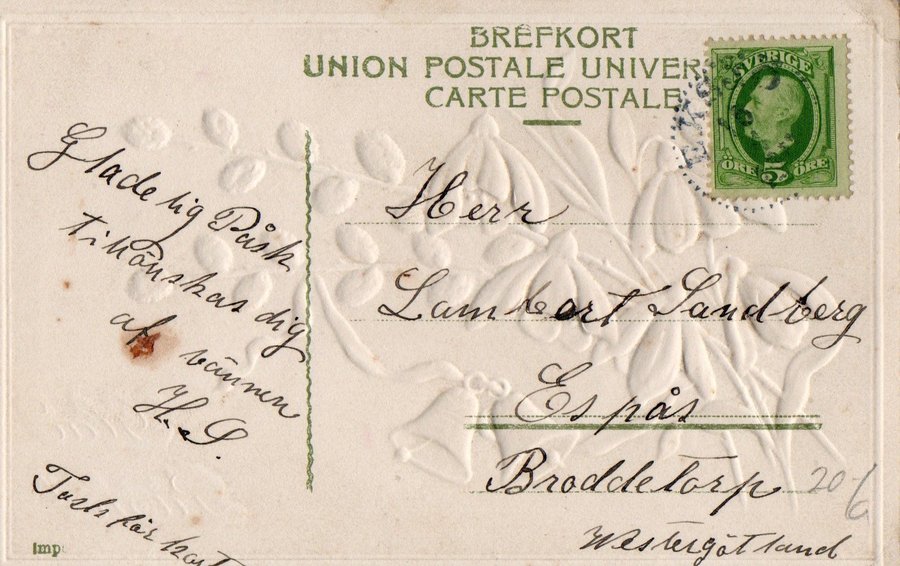 BREFKORT
UNION POSTALE UNIVER
CARTE POSTALE
SVERIGE
ÖRE 5 ÖRE
Gladelig Påsk
tillönskas dig
af vännen
H. S.
Tack för kort
Herr
Lambert Sandberg
Espås
Broddetorp
Westergötland
20
6
Imp